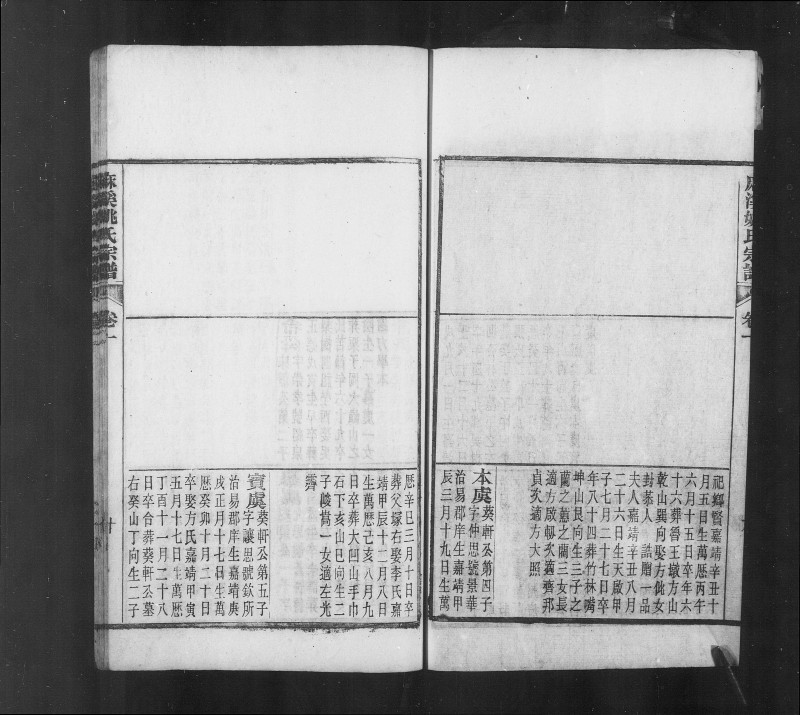 麻溪姚氏宗譜
卷一
祀鄉賢嘉靖辛丑十
月五日生萬歷丙午
六月十五日卒年六
十六葬魯王墩方山
乾山巽向娶方仳女
封恭人 誥贈一品
夫人嘉靖辛丑八月
二十六日生天啟甲
子七月二十七日卒
年八十四葬竹林嘴
坤山艮向生三子之
蘭之蕙之蘭三女長
適方啟 次適齊邦
貞次適方大照
本虞
葵軒公第四子
字仲思號景華
治易郡庠生嘉靖甲
辰三月十九日生萬
歷辛巳三月十日卒
葬父塚右娶李氏嘉
靖甲辰十二月八日
生萬歷己亥八月九
日卒葬大凹山手巾
石下亥山巳向生二
子峻嵩一女適左光
霽
賓虞
葵軒公第五子
字讓思號欽所
治易郡庠生嘉靖庚
戌正月十七日生萬
歷癸卯十月二十日
卒娶方氏嘉靖甲寅
五月十七日生萬歷
丁酉十一月二十八
日卒合葬葵軒公墓
右癸山丁向生二子
麻溪姚氏宗譜
卷一